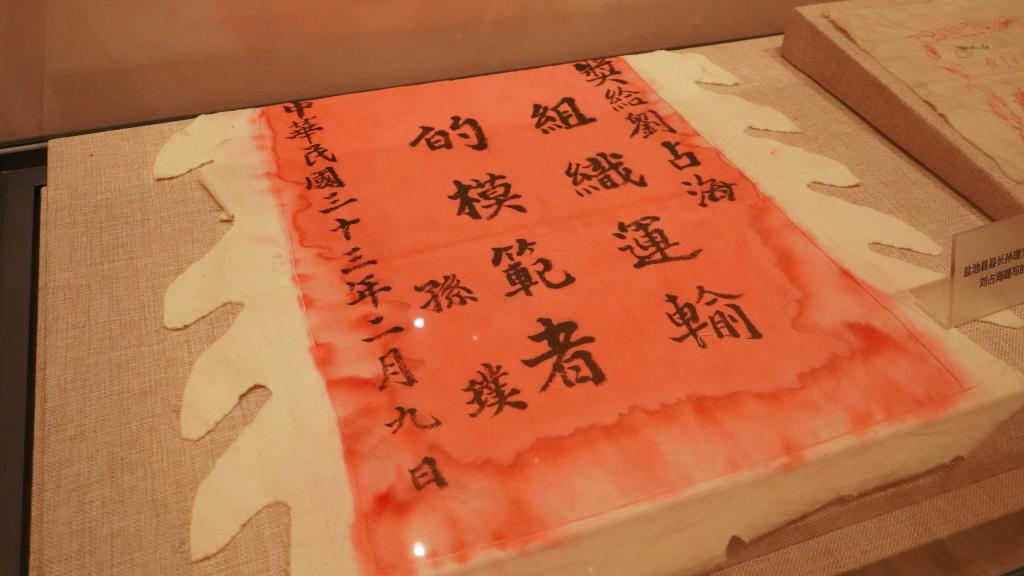 獎給劉占海
組織運輸
的模範者
孫璞
中華民國三十三年二月九日
盐池县县长孙璞
刘占海题写的